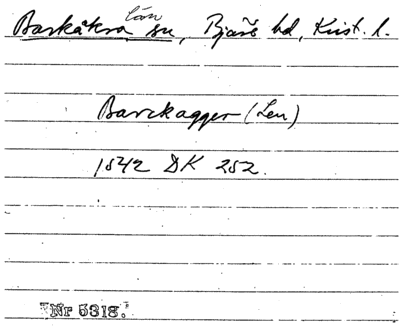 Barkåkra län sn, Bjäre hd, Krist. l.
Barckagger (Len)
1542 DK 252.
Nr 5318.